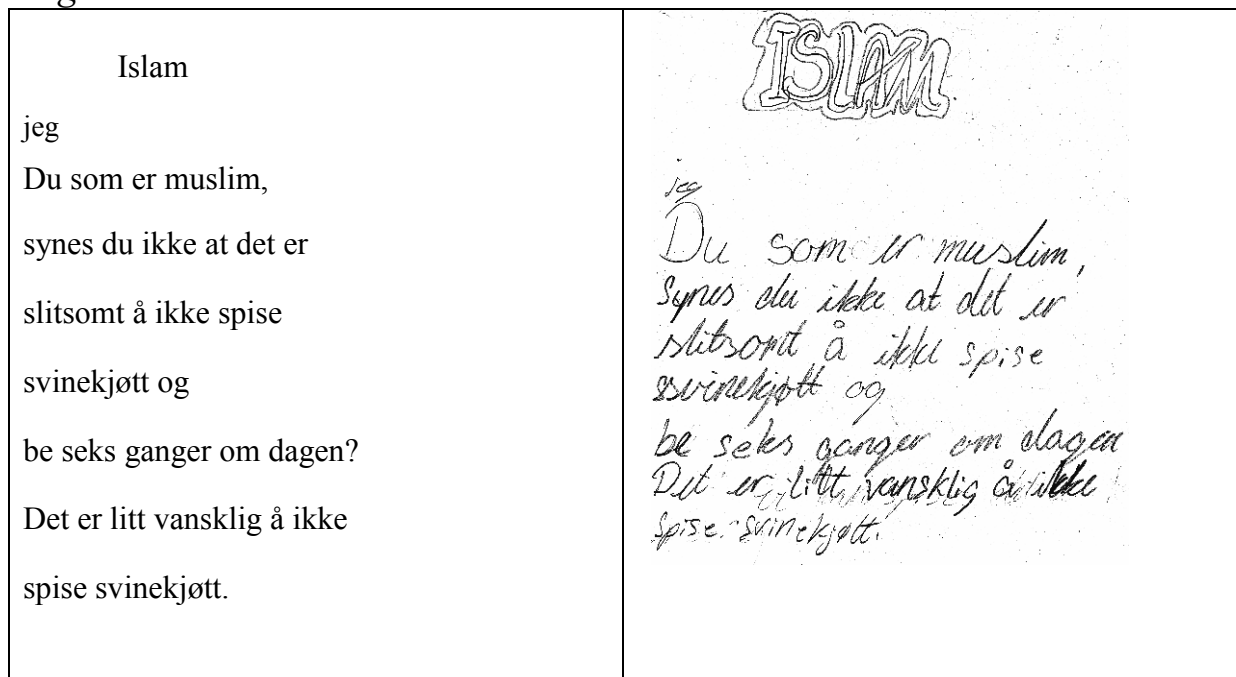 Islam
jeg
Du som er muslim,
synes du ikke at det er
slitsomt å ikke spise
svinekjøtt og
be seks ganger om dagen?
Det er litt vansklig å ikke
spise svinekjøtt.
ISLAM
jeg
Du som er muslim,
synes du ikke at det er
slitsomt å ikke spise
svinekjøtt og
be seks ganger om dagen
Det er litt vansklig å ikke
spise svinekjøtt.